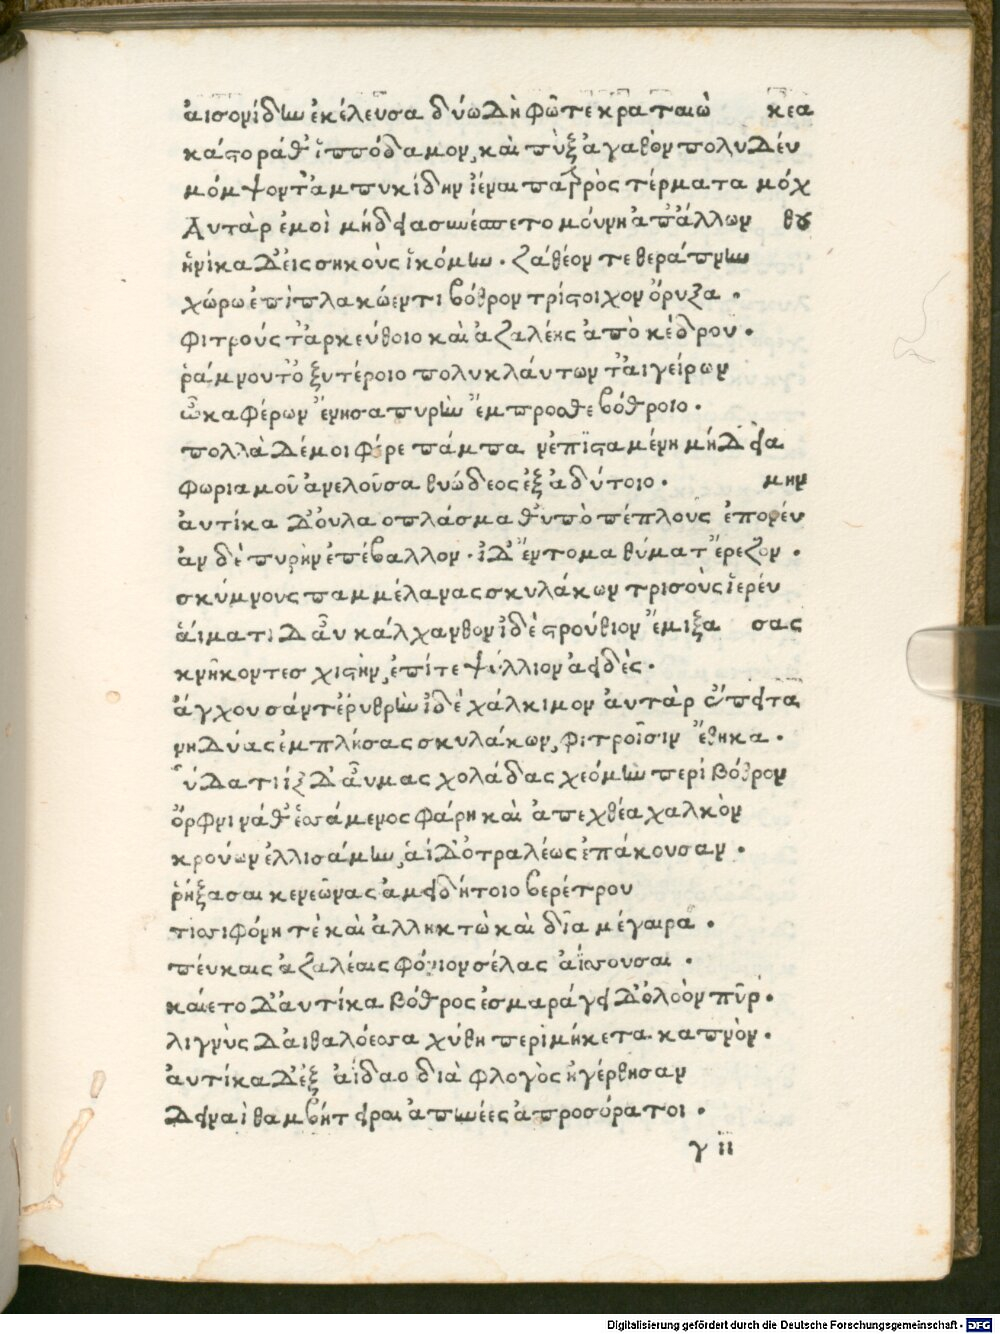 ἀισονίδην ἐκέλευσα δύω Δὴ φῶτε κραταιὼ κεα
κάστορά θ᾽ ἱππόδαμον, καὶ πὺξ ἀγαθὸν πολυΔέυ
μόμψον τ᾽ ἀμπυκίδην ἰέναι πατρὸς τέρματα μόχ
Αυτὰρ ἐμοὶ μήδεια συνέσπετο μόυνη ἀπ᾽ ἄλλων θου
ἡνίκα Δ᾽ ἐις σηκοὺς ἱκόμην. ζάθεόν τε θεράπνην
χώρω ἐπὶ πλακόεντι βόθρον τρίστοιχον ὄρυξα.
φιτροὺς τ᾽ ἀρκεύθοιο καὶ ἀζαλέης ἀπὸ κέδρου.
ῥάμνου τ᾽ ὀξυτέροιο πολυκλάυτων τ᾽ ἀιγείρων
ὦκα φέρων ἔνησα πυρὴν ἔμπροσθε βόθροιο.
πολλὰ Δέ μοι φέρε πάμπαν ἐπισταμένη μήΔεια
φωριαμοῦ ἀνελοῦσα θυώδεος ἐξ ἀδύτοιο. μην
ἀυτίκα Δ᾽ ὀυλοπλάσμαθ᾽ ὑπὸ πέπλους ἐπονέυ
ἂν δὲ πυρὴν ἐπέβαλλον. ἰΔ᾽ ἔντομα θύματ᾽ ἔρεζον.
σκύμνους παμμέλανας σκυλάκων τρισοὺς ἱερέυ
ἅιματι Δ᾽ ἂυ κάλχανθον ἰδὲ στρούθιον ἔμιξα σας
κνῆκον τε σχιστὴν, ἐπί τε ψύλλιον ἀειδὲς.
ἄγχουσάν τ᾽ ἐρυθρὴν ἰδὲ χάλκιμον ἀυτὰρ ἔπειτα
νηΔύας ἐμπλήσας σκυλάκων, φιτροῖσιν ἔθηκα.
ὕΔατι ἰξ Δ᾽ ἂυ μας χολάδας χεόμην περὶ βόθρον
ὄρφνινά θ᾽ ἑσσάμενος φάρη καὶ ἀπεχθέα χαλκὸν
κρούων ἐλλισάμην, ἁι Δ᾽ ὀτραλέως ἐπάκουσαν.
ῥήξασαι κενεῶνας ἀμειδήτοιο βερέτρου
τισιφόνη τὲ καὶ ἀλληκτὼ καὶ δῖα μέγαιρα.
πέυκαις ἀζαλέαις φόνιον σέλας ἀίσσουσαι.
κάιετο Δ᾽ ἀυτίκα βόθρος ἐσμαράγει Δ᾽ ὀλοὸν πῦρ.
λιγνὺς Δ᾽ αἰθαλόεσσα χύθη περιμήκετα καπνὸν.
ἀυτίκα Δ᾽ ἐξ ἀίδαο διὰ φλογὸς ἠγέρθησαν
Δειναὶ θαμβήτειραι ἀπηνέες ἀπροσόρατοι.
γ ii
Digitalisierung gefördert durch die Deutsche Forschungsgemeinschaft - DFG